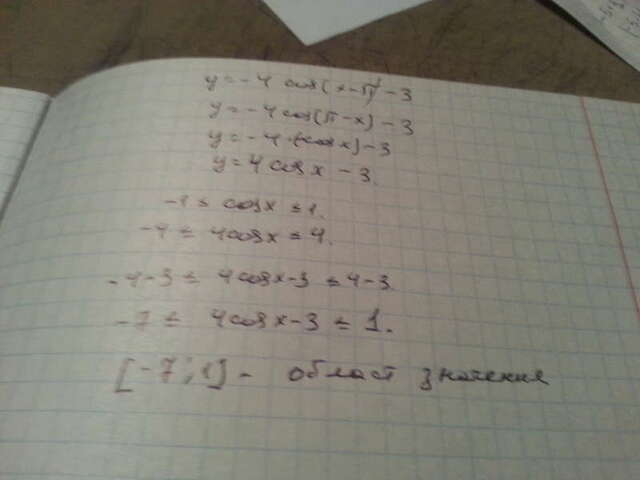 y = -4 cos(x-π) - 3
y = -4 cos(π-x) - 3
y = -4·(-cosx) - 3
y = 4 cosx - 3.
-1 ≤ cosx ≤ 1.
-4 ≤ 4cosx ≤ 4.
-4-3 ≤ 4cosx-3 ≤ 4-3.
-7 ≤ 4cosx-3 ≤ 1.
[-7; 1] - област значения